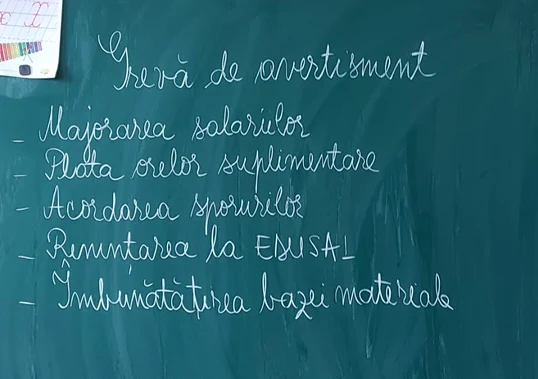 x X
Grevă de avertisment
- Majorarea salariilor
- Plata orelor suplimentare
- Acordarea sporurilor
- Renunțarea la EDUSAL
- Îmbunătățirea bazei materiale